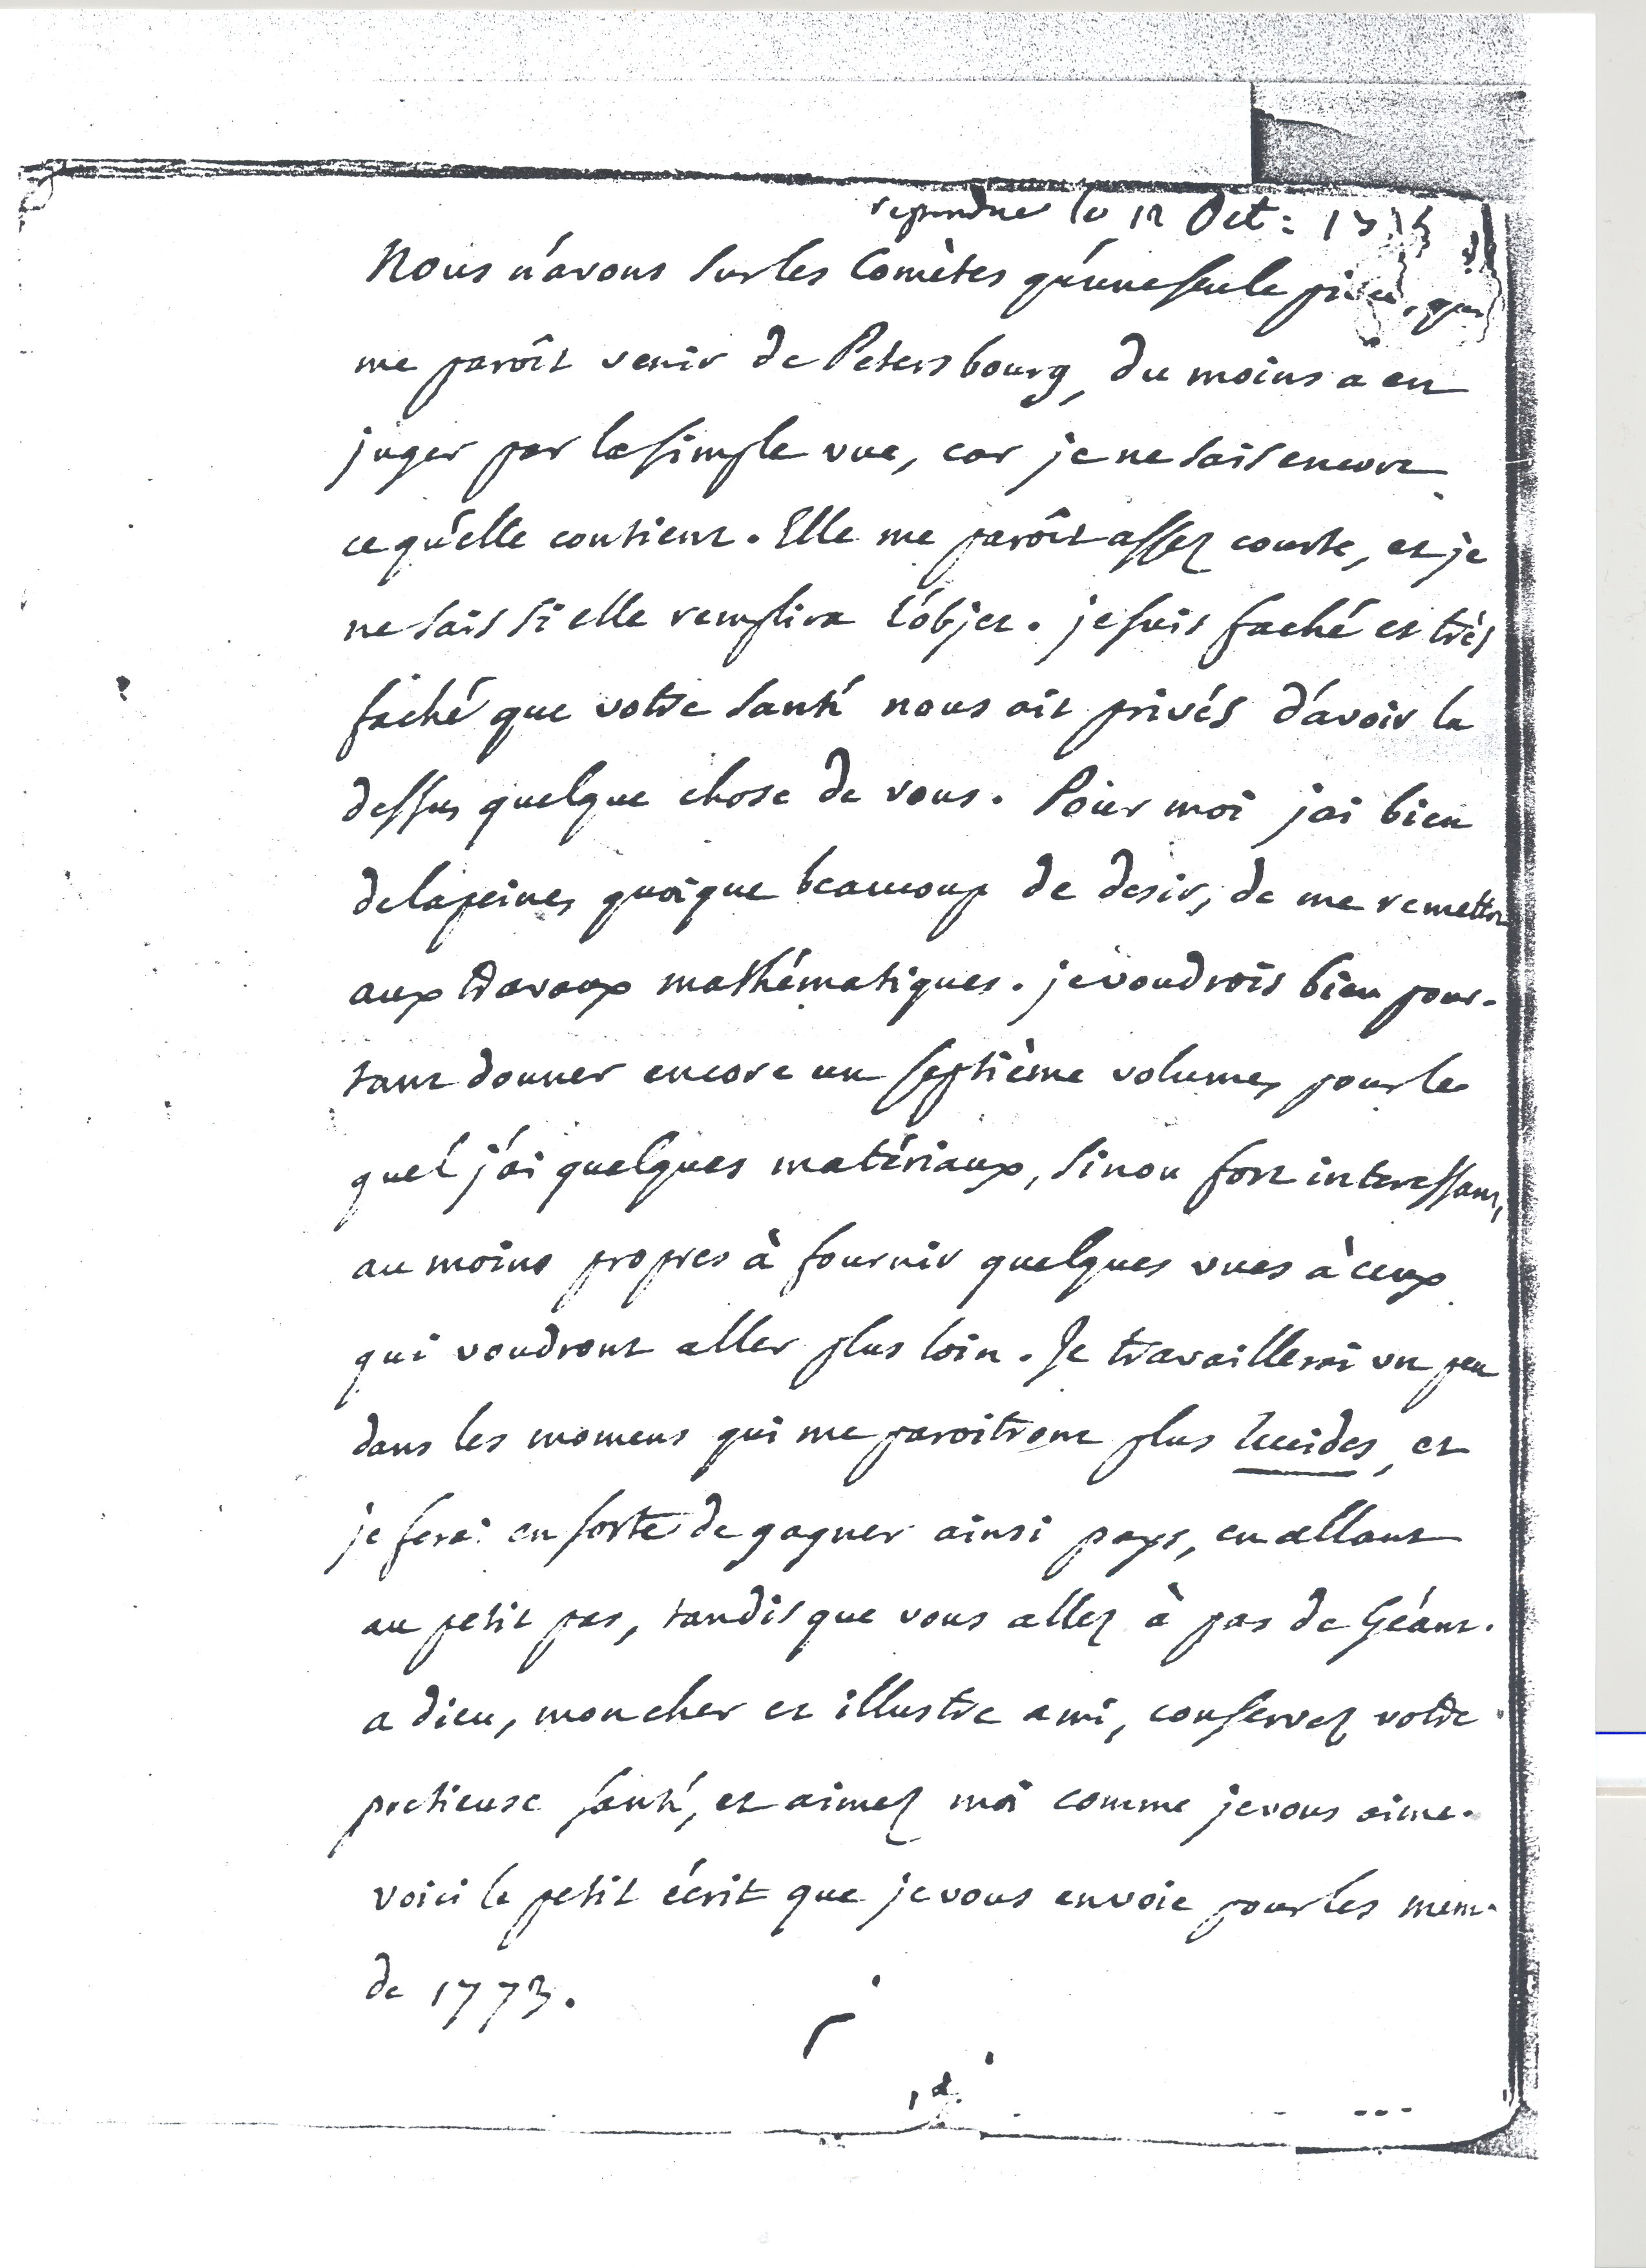 repondue le 12 Oct:
Nous n'avons sur les Comètes qu'une seule piece, qui
me paroît venir de Petersbourg, du moins a en
juger par la simple vue, car je ne sais encore
ce qu'elle contient. Elle me paroît assez courte, et je
ne sais si elle remplira l'objet. je suis faché et très
faché que votre santé nous ait privés d'avoir la
dessus quelque chose de vous. Pour moi jai bien
de la peine, quoique beaucoup de desir, de me remettre
aux travaux mathématiques. je voudrois bien pour-
tant donner encore un septième volume, pour le
quel j'ai quelques matériaux, sinon fort interessans,
au moins propres à fournir quelques vues à ceux
qui voudront aller plus loin. Je travaillerai un peu
dans les momens qui me paroitront plus lucides, et
je ferai en sorte de gagner ainsi pays, en allant
au petit pas, tandis que vous allez à pas de Géant.
a dieu, mon cher et illustre ami, conservez votre
pretieuse santé, et aimez moi comme je vous aime.
voici le petit écrit que je vous envoie pour les mem.
de 1773.